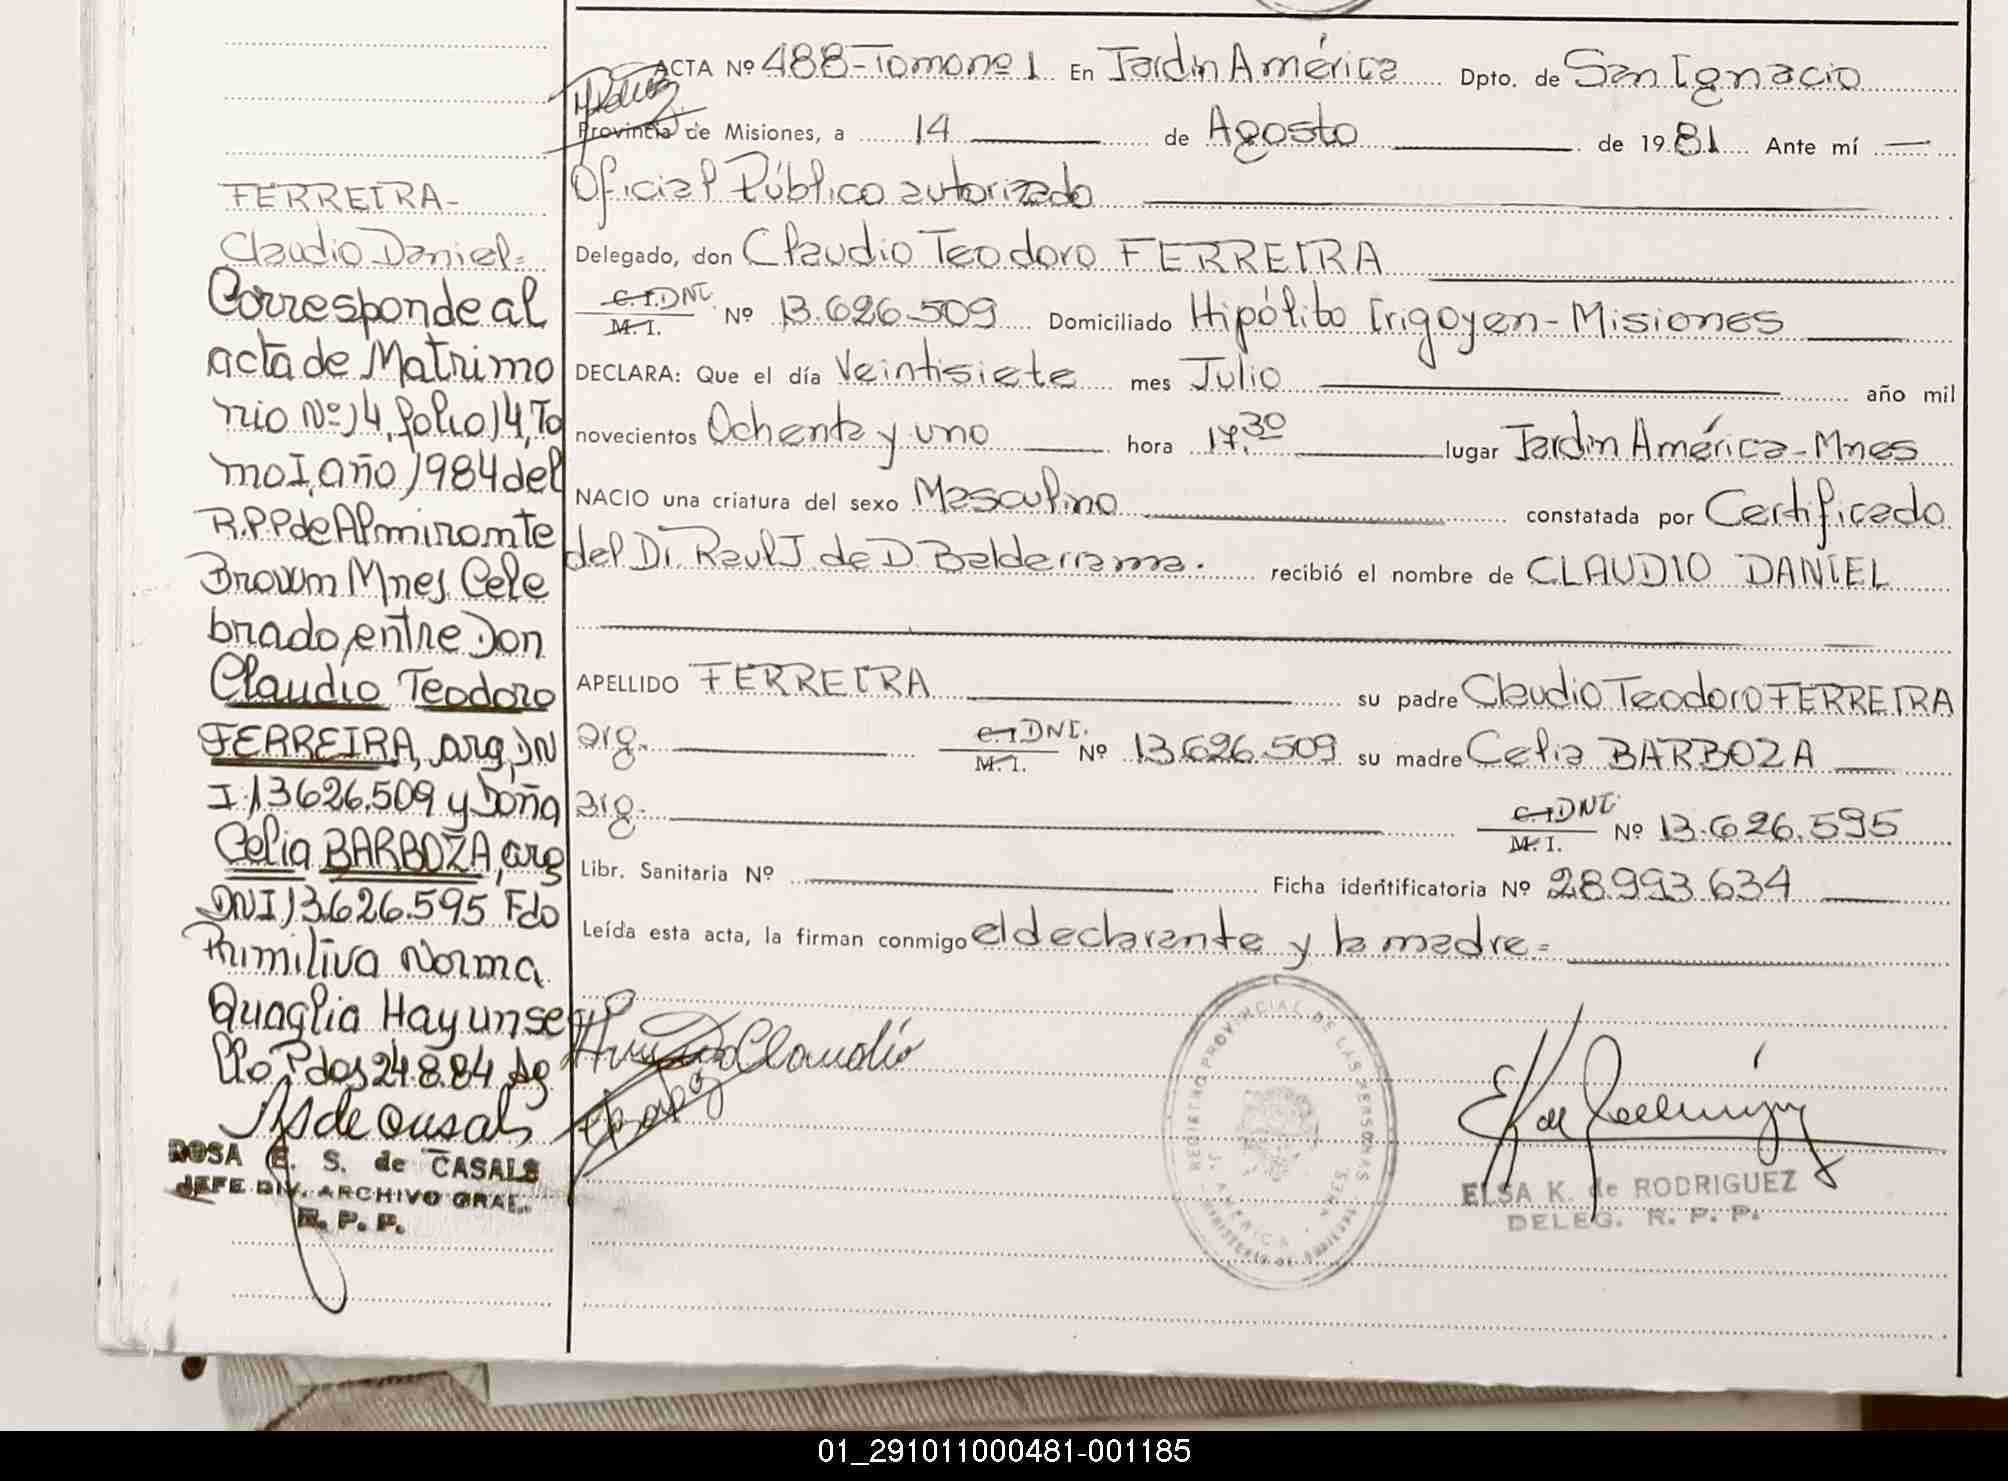 FERREIRA-
Claudio Daniel=
Corresponde al
acta de Matrimo
nio Nº 14, folio 14, To
mo I, año 1984 del
R.P.P de Almirante
Brown Mnes. Cele
brado, entre Don
Claudio Teodoro
FERREIRA, arg, DN
I. 13.626.509 y Doña
Celia BARBOZA, arg
DNI 13.626.595 Fdo
Primitiva Norma
Quaglia Hay un se
llo Pdas 24.8.84
ROSA E. S. de CASALS
JEFE DIV. ARCHIVO GRAL.
R. P. P.
ACTA Nº 488-Tomo nº 1 En Jardín América Dpto. de San Ignacio
Provincia de Misiones, a 14 de Agosto de 1981 Ante mí —
Oficial Público autorizado
Delegado, don Claudio Teodoro FERREIRA
C.I. DNI. M.I. Nº 13.626.509 Domiciliado Hipólito Irigoyen - Misiones
DECLARA: Que el día Veintisiete mes Julio año mil
novecientos Ochenta y uno hora 17,30 lugar Jardín América - Mnes
NACIO una criatura del sexo Masculino constatada por Certificado
del Dr. Raul J. de D. Balderrama. recibió el nombre de CLAUDIO DANIEL
APELLIDO FERREIRA su padre Claudio Teodoro FERREIRA
arg. C.I. DNI. M.I. Nº 13.626.509 su madre Celia BARBOZA
arg. C.I. DNI. M.I. Nº 13.626.595
Libr. Sanitaria Nº Ficha identificatoria Nº 28.993.634
Leída esta acta, la firman conmigo el declarante y la madre=
Claudio
REGISTRO PROVINCIAL DE LAS PERSONAS
J. AMERICA
ELSA K. de RODRIGUEZ
DELEG. R. P. P.
01_291011000481-001185